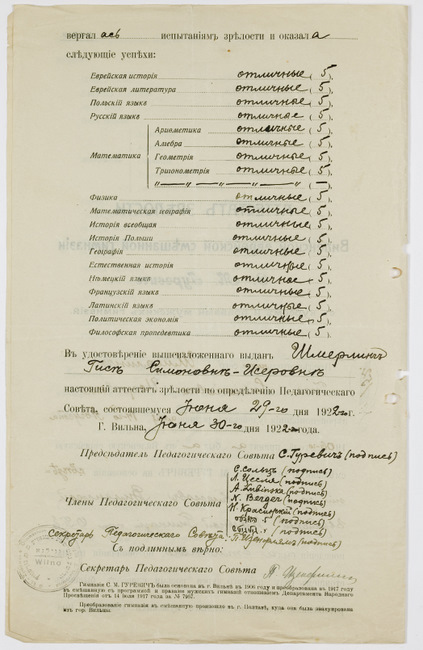 вергалась испытаніямъ зрѣлости и оказала
слѣдующіе успѣхи:
Еврейская исторія отличные (5),
Еврейская литература отличные (5),
Польскій языкъ отличные (5),
Русскій языкъ отличные (5),
Ариѳметика отличные (5),
Алгебра отличные (5),
Математика Геометрія отличные (5),
Тригонометрія отличные (5),
Физика отличные (5),
Математическая географія отличные (5),
Исторія всеобщая отличные (5),
Исторія Польши отличные (5),
Географія отличные (5),
Естественная исторія отличные (5),
Нѣмецкій языкъ отличные (5),
Французскій языкъ отличные (5),
Латинскій языкъ отличные (5),
Политическая экономія отличные (5),
Философская пропедевтика отличные (5),
Въ удостовѣреніе вышеизложеннаго выданъ
настоящій аттестатъ зрѣлости по опредѣленію Педагогическаго
Совѣта, состоявшемуся Іюня 29-го дня 1922-го г.
Г. Вильна, Іюня 30-го дня 1922-го года.
Предсѣдатель Педагогическаго Совѣта С. Гуревичъ (подпись)
(подпись)
(подпись)
(подпись)
Члены Педагогическаго Совѣта (подпись)
(подпись)
(подпись)
(подпись)
секретарь Педагогическаго Совѣта: (подпись)
Съ подлиннымъ вѣрно:
Секретарь Педагогическаго Совѣта
Гимназія С. М. ГУРЕВИЧЪ была основана въ г. Вильнѣ въ 1906 году и преобразована въ 1917 году
въ смѣшанную съ программой и правами мужскихъ гимназій отношеніемъ Департамента Народнаго
Просвѣщенія отъ 14 іюля 1917 года за № 7957.
Преобразованіе гимназіи въ смѣшанную произошло въ г. Полтавѣ, куда она была эвакуирована
изъ гор. Вильны.